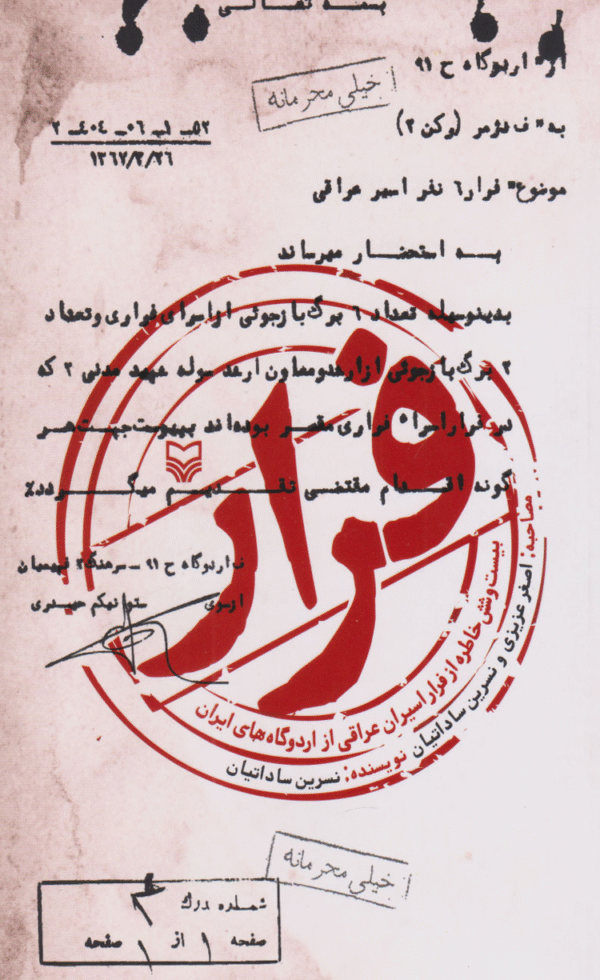 بسمه تعالی
از" اردوگاه ح ۹۱
خیلی محرمانه
به" ف دژمر (رکن ۲)
۵۲ـ ب ـ ۰۶ـ ۴۰۴ـ ۲
۱۳۶۷/۳/۲۶
موضوع" فرار ۶ نفر اسیر عراقی
بـه استحضـار میرساند
بدینوسیله تعداد ۶ برگ بازجوئی ازاسرای فراری وتعداد
۲ برگ بازجوئی ازارشدومعاون ارشد سوله شهید مدنی ۲ که
در فراراسراء فراری مقصر بوده‌اند بپیوست جهت هر
گونه اقـدام مقتضی تقـدیـم میگـردد٪
فرار
ف اردوگاه ح ۹۱ ـ سرهنگ ۲ فهیمیان
ازسوی ستوانیکم حیدری
بیست و شش خاطره از فرار اسیران عراقی از اردوگاه‌های ایران
مصاحبه: اصغر عزیزی و نسرین ساداتیان
نویسنده: نسرین ساداتیان
خیلی محرمانه
شماره مدرک ۳
صفحه ۱ از ۱ صفحه